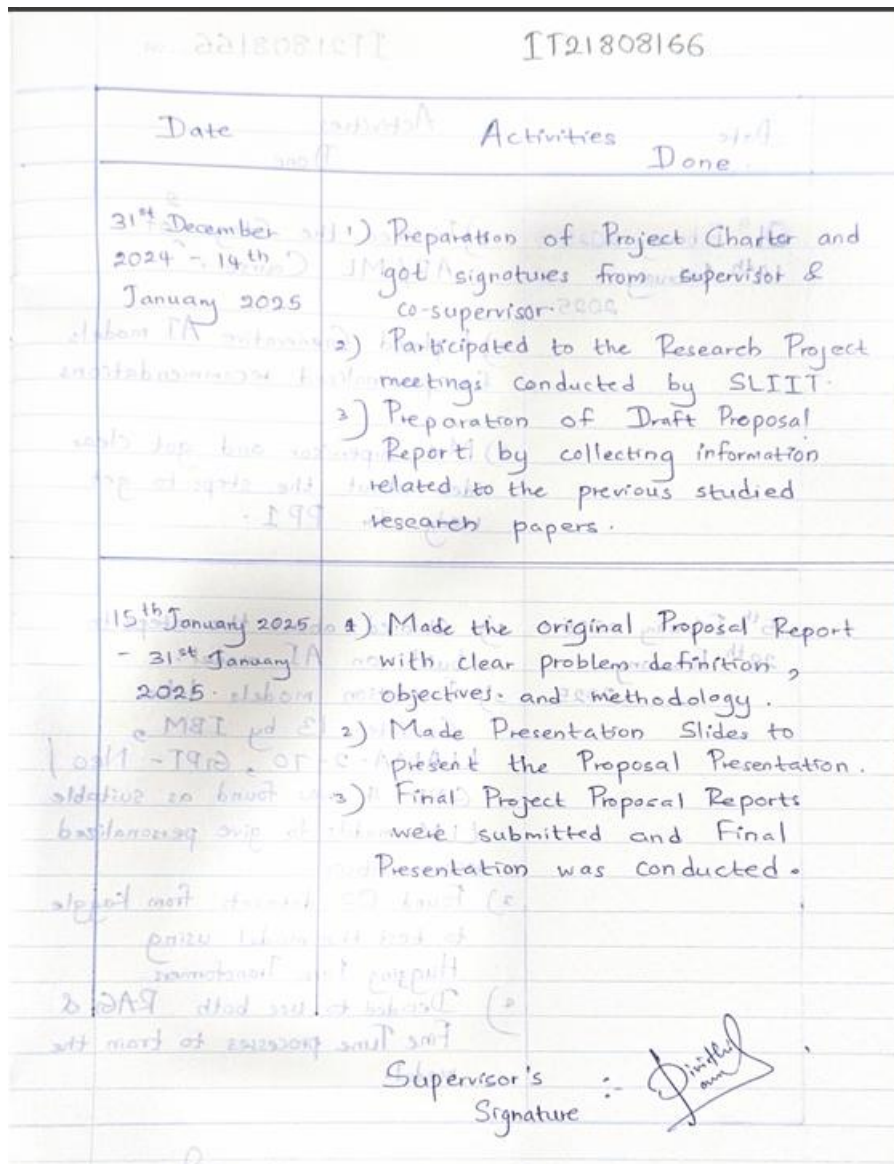 IT21808166
Date
Activities
Done.
31st December
2024 - 14th
January 2025
1) Preparation of Project Charter and
got signatures from supervisor &
co-supervisor.
2) Participated to the Research Project
meetings conducted by SLIIT.
3) Preparation of Draft Proposal
Report by collecting information
related to the previous studied
research papers.
15th January 2025
- 31st January
2025.
1) Made the original Proposal Report
with clear problem definition,
objectives. and methodology.
2) Made Presentation Slides to
present the Proposal Presentation.
3) Final Project Proposal Reports
were submitted and Final
Presentation was conducted.
Supervisor's :-
Signature